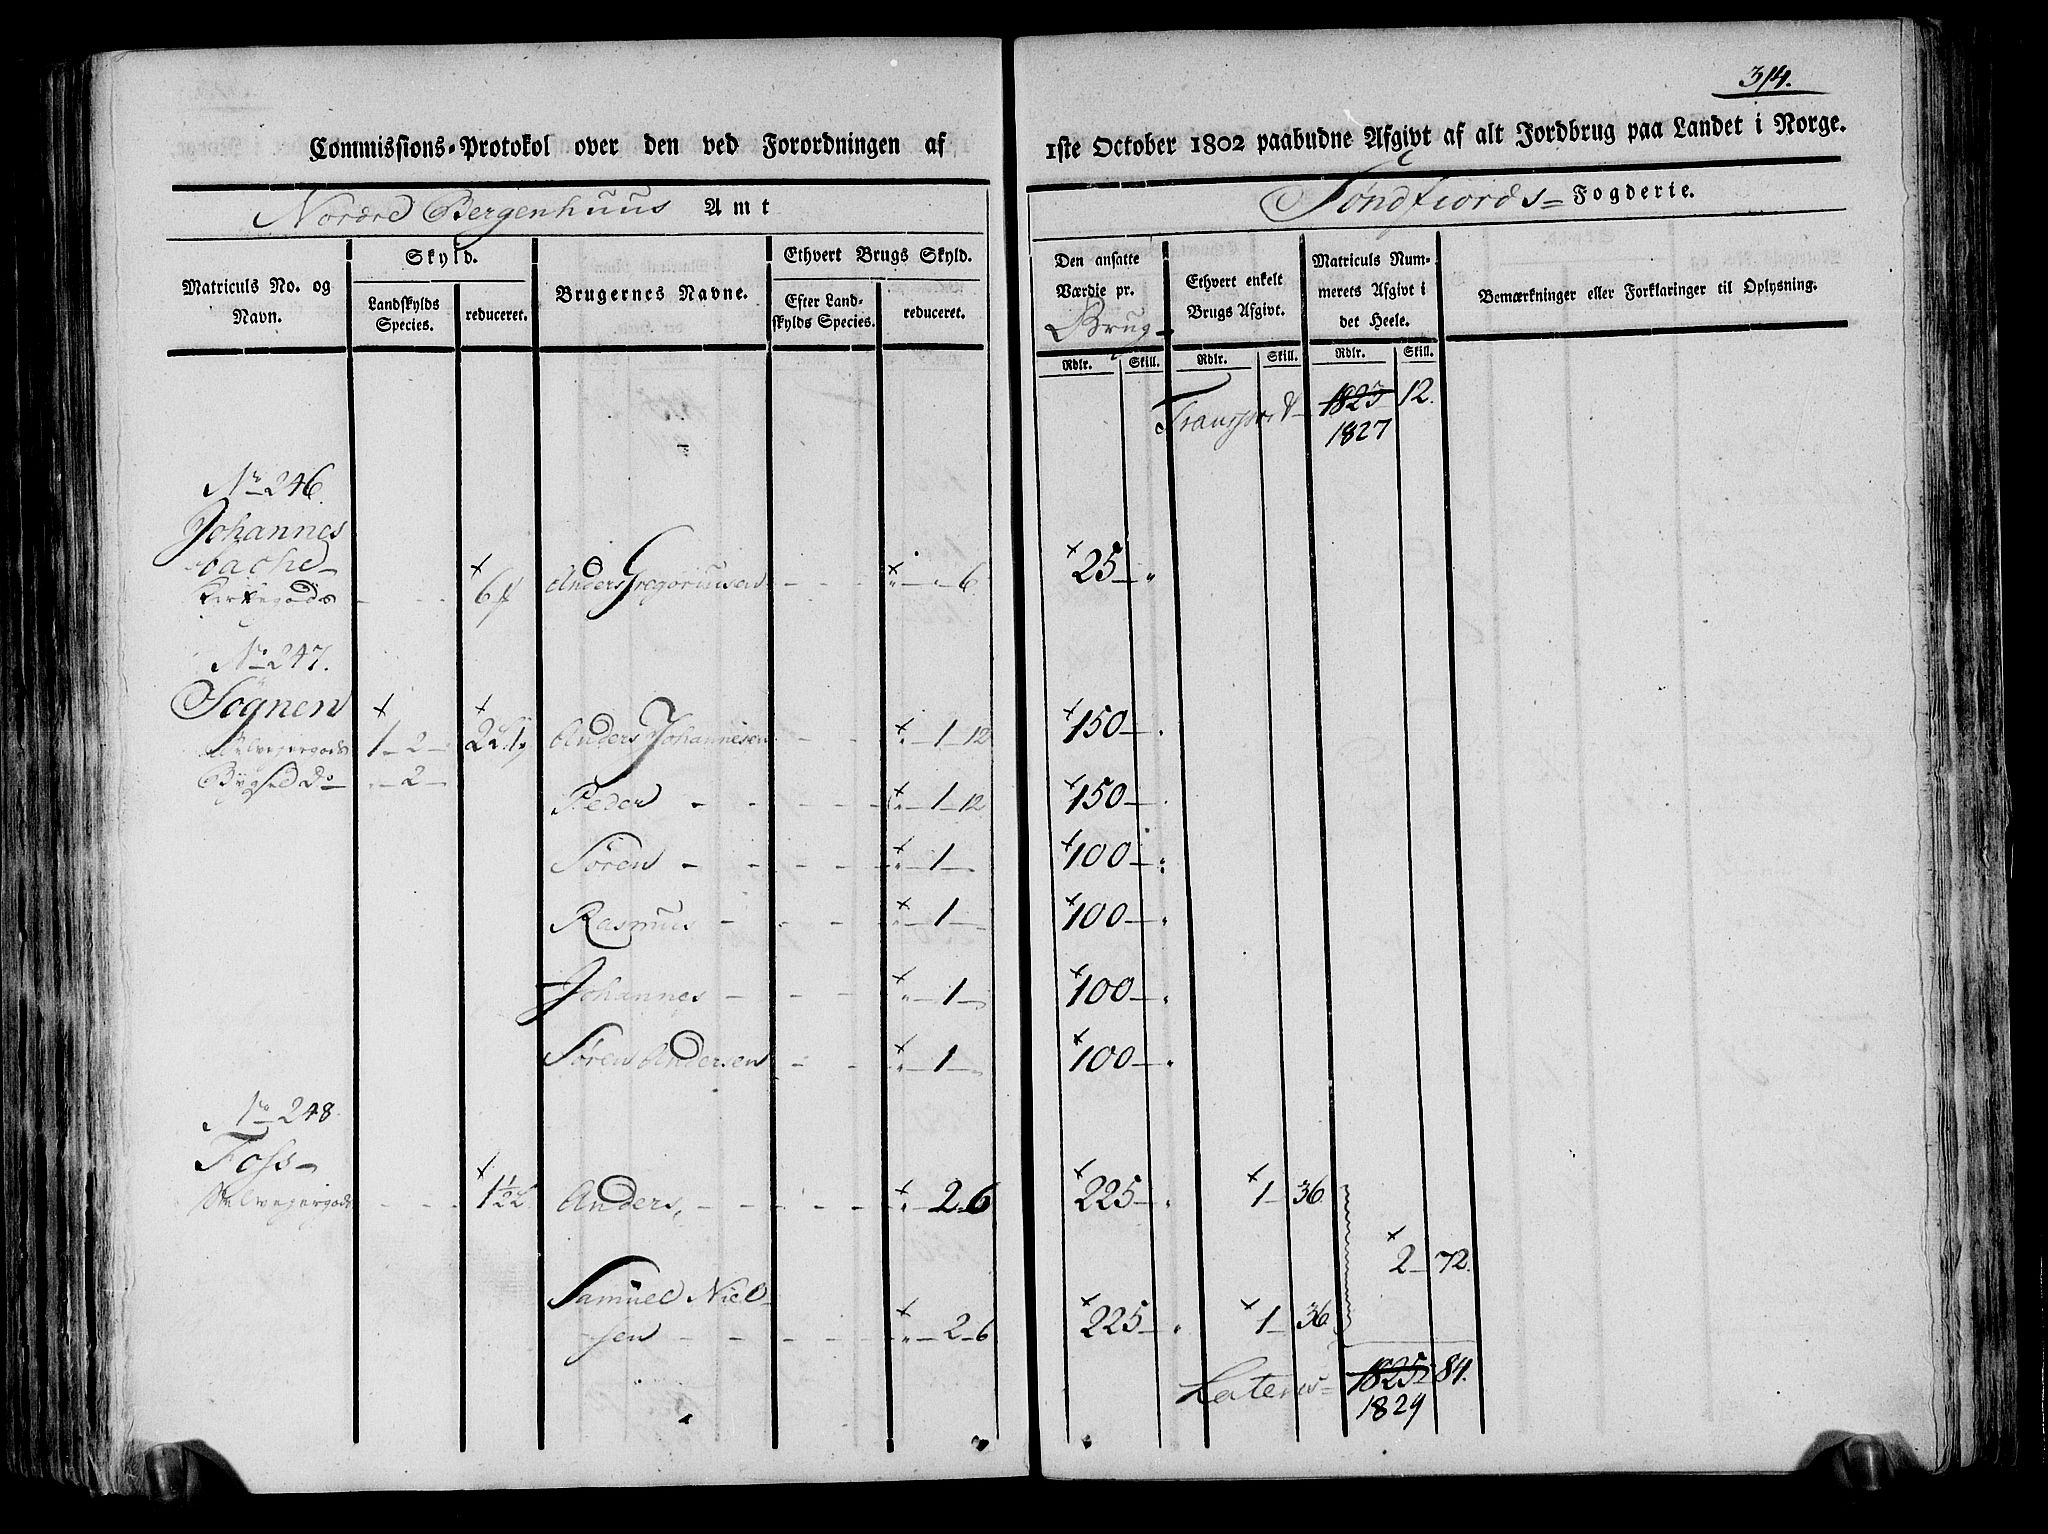 314.
Commissions-Protokol over den ved Forordningen af 1ste October 1802 paabudne Afgivt af alt Jordbrug paa Landet i Norge.
Nordre Bergenhuus Amt
Søndfiords= Fogderie.
Matriculs No. og Navn.
Skyld.
Landskylds Species.
reduceret.
Brugernes Navne.
Ethvert Brugs Skyld.
Efter Landskylds Species.
reduceret.
Den ansatte Værdie pr.
Brug-
Ethvert enkelt Brugs Afgivt.
Matriculs Nummerets Afgivt i det Heele.
Bemærkninger eller Forklaringer til Oplysning.
Rdlr. Skill. Rdlr. Skill. Rdlr. Skill.
Transport 1823 12.
1827
No 246.
Johannes
bache
Kirkegods 6 Anders Gregoriusen 6 25
No 247.
Sognen
Selveyergods 1 - 2 Anders Johannesen 1 - 12 150
Bygsel Do 2
Peder 1 - 12 150
Søren 1 100
Rasmus 1 100
Johannes 1 100
Søren Andersen 1 100
No 248.
Foss
Selveyergods 1½ L Anders 2 - 6 225 1 - 36
2 - 72.
Samuel Niel-
sen 2 - 6 225 1 - 36
Lateris 1825 84.
1829